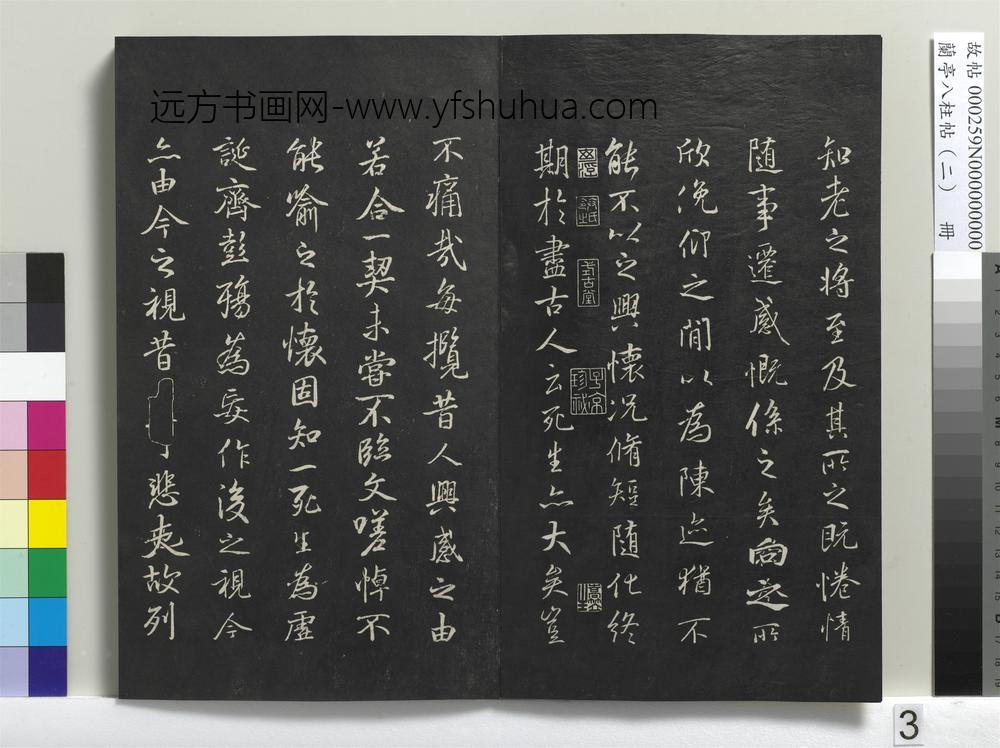 远方书画网-www.yfshuhua.com
知老之将至及其所之既惓情
随事遷感慨係之矣向之所
欣俛仰之閒以為陳迹猶不
能不以之興懷况脩短随化終
期於盡古人云死生亦大矣豈
不痛哉每攬昔人興感之由
若合一契未嘗不臨文嗟悼不
能喻之於懷固知一死生為虛
誕齊彭殤為妄作後之視今
亦由今之視昔
悲夫故列
故帖 000259N000000000
蘭亭八柱帖(二) 冊
3